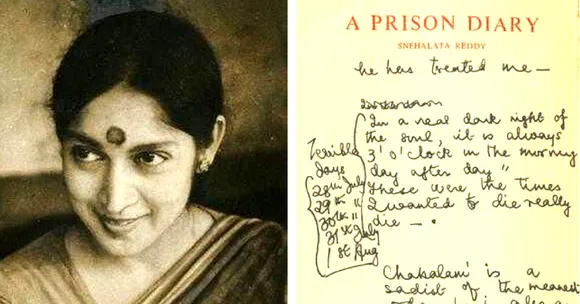 A PRISON DIARY
SNEHALATA REDDY
he has treated me —
"In a real dark night of
the soul, it is always
3' O'clock in the morning
day after day"
These were the times
I wanted to die really
die — .
Terrible
days
28th July
29th "
30th "
31st July
1st Aug
is a
sadist of the meanest